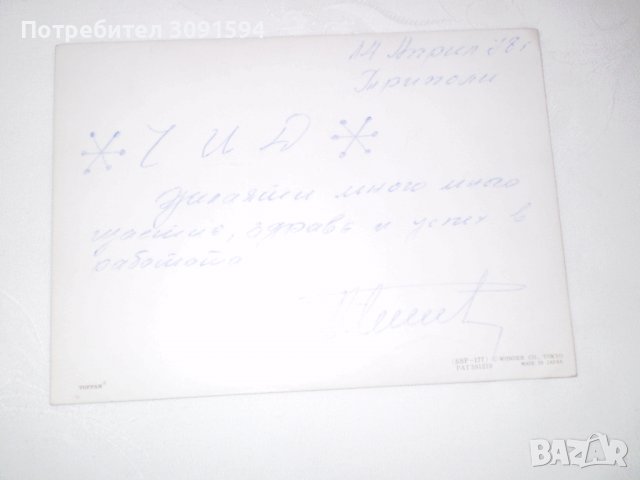 Потребител 3091594
14 Април 81
Триполи
Ч И Д
Желая ти много много
щастие, здраве и успех в
работата
TOPPAN
WONDER CO. TOKYO
MADE IN JAPAN
BAZAR